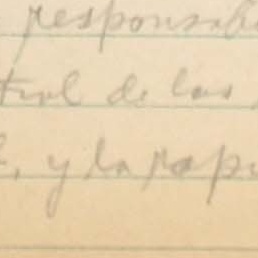 responsab
trol de las
, y la rap